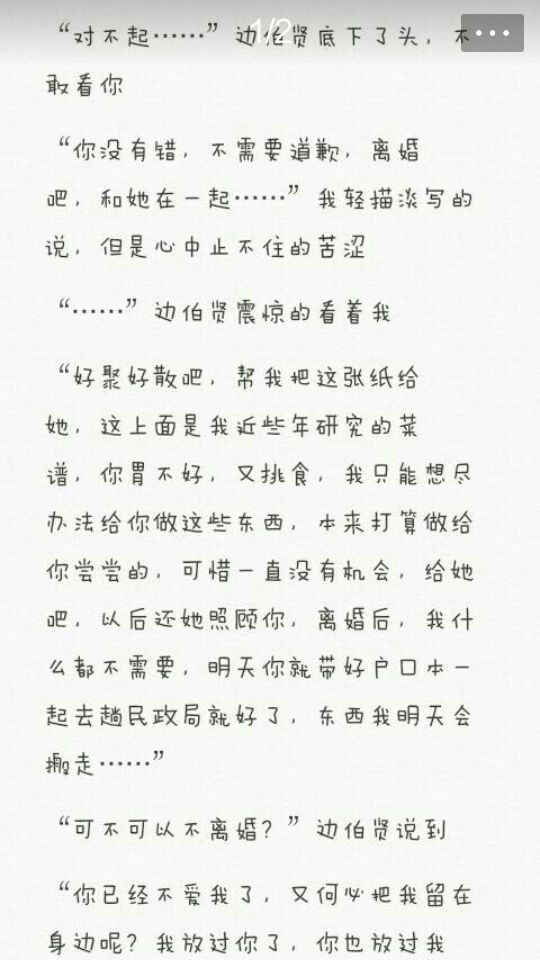 1/2
“对不起……”边伯贤底下了头，不
敢看你
“你没有错，不需要道歉，离婚
吧，和她在一起……”我轻描淡写的
说，但是心中止不住的苦涩
“……”边伯贤震惊的看着我
“好聚好散吧，帮我把这张纸给
她，这上面是我近些年研究的菜
谱，你胃不好，又挑食，我只能想尽
办法给你做这些东西，本来打算做给
你尝尝的，可惜一直没有机会，给她
吧，以后还她照顾你，离婚后，我什
么都不需要，明天你就带好户口本一
起去趟民政局就好了，东西我明天会
搬走……”
“可不可以不离婚？”边伯贤说到
“你已经不爱我了，又何必把我留在
身边呢？我放过你了，你也放过我